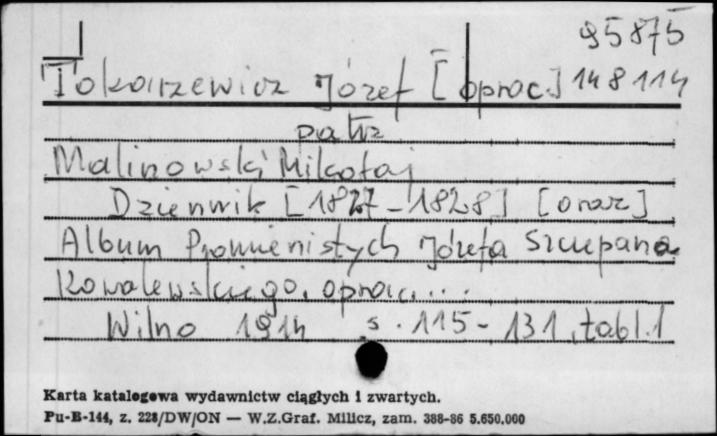 95875
Tokarzewicz Józef [oprac.] 148114
patrz
Malinowski Mikołaj
Dziennik [1827-1828] [oraz]
Album Promienistych Józefa Szczepana
Kowalewskiego, oprac. ...
Wilno 1914 s. 115-131, tabl. 1
Karta katalogowa wydawnictw ciągłych i zwartych.
Pu-B-144, z. 228/DW/ON — W.Z.Graf. Milicz, zam. 388-86 5.650.000